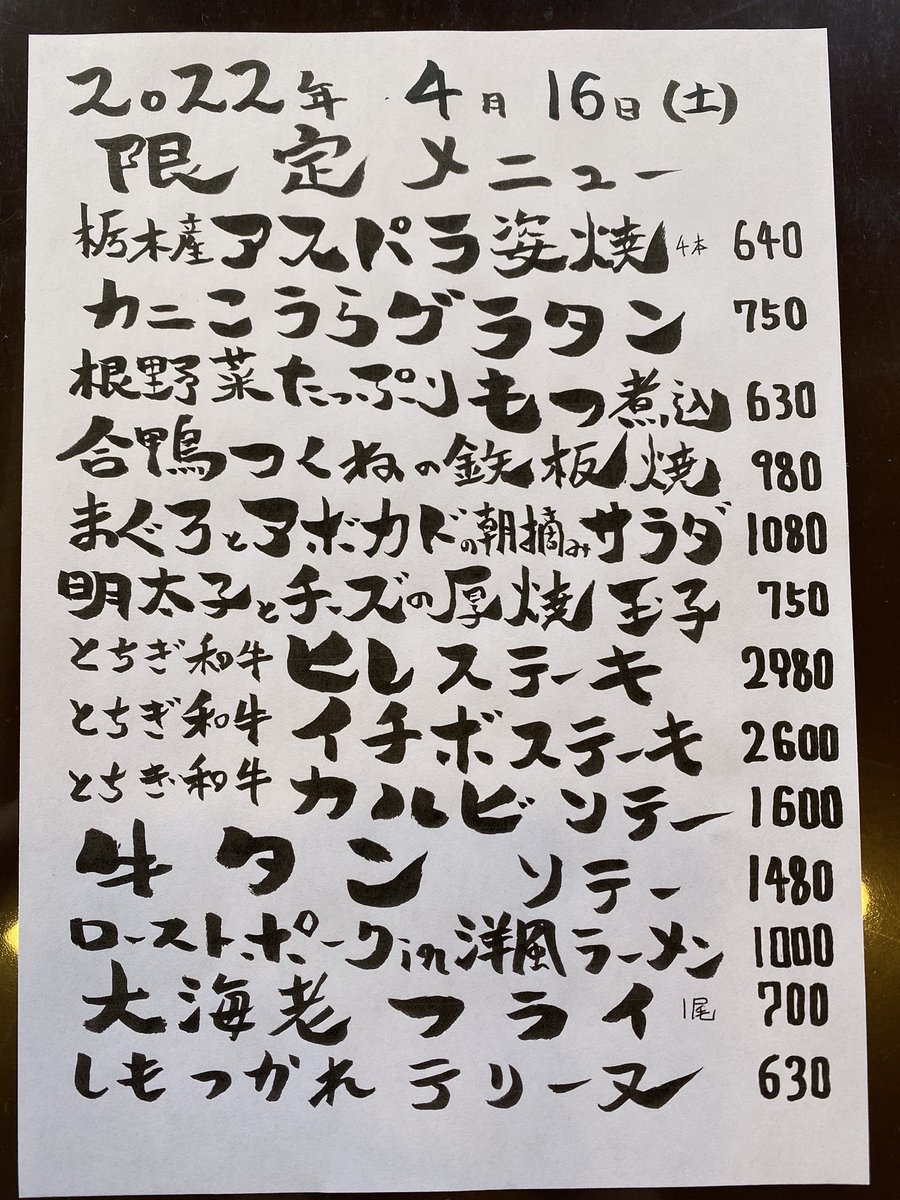 2022年 4月 16日(土)
限定メニュー
栃木産アスパラ姿焼 4本 640
カニこうらグラタン 750
根野菜たっぷりもつ煮込 630
合鴨つくねの鉄板焼 980
まぐろとアボカドの朝摘みサラダ 1080
明太子とチーズの厚焼玉子 750
とちぎ和牛 ヒレステーキ 2980
とちぎ和牛 イチボステーキ 2600
とちぎ和牛 カルビソテー 1600
牛タン ソテー 1480
ローストポークin洋風ラーメン 1000
大海老フライ 1尾 700
しもつかれテリーヌ 630